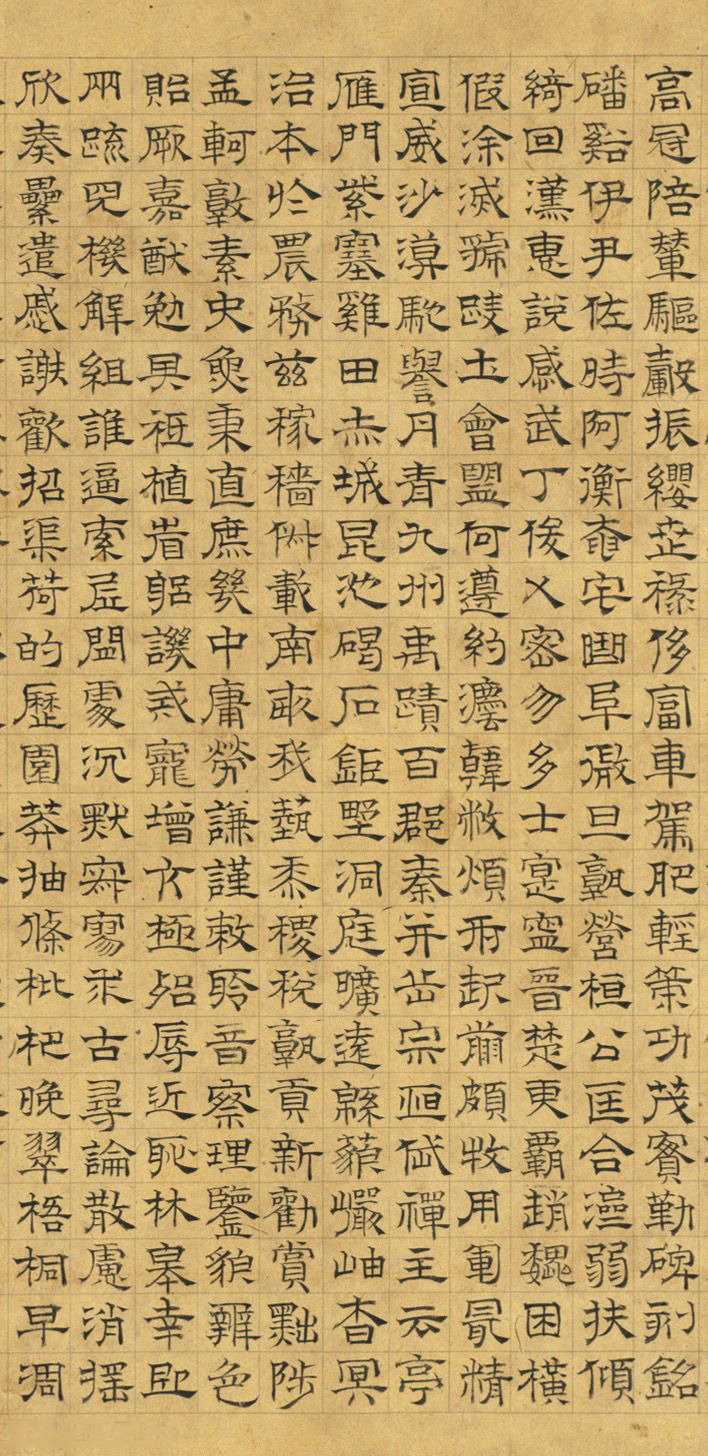 高冠陪輦驅轂振纓世祿侈富車駕肥輕策功茂實勒碑刻銘
磻谿伊尹佐時阿衡奄宅曲阜微旦孰營桓公匡合濟弱扶傾
綺回漢惠說感武丁俊乂密勿多士寔寧晉楚更霸趙魏困橫
假涂滅虢踐土會盟何遵約灋韓敝煩刑起翦頗牧用軍最精
宣威沙漠馳譽丹青九州禹蹟百郡秦并岳宗恒岱禪主云亭
雁門紫塞雞田赤城昆池碣石鉅野洞庭曠遠緜藐巖岫杳冥
治本於農務茲稼穡俶載南畝我藝黍稷稅孰貢新勸賞黜陟
孟軻敦素史魚秉直庶幾中庸勞謙謹敕聆音察理鑒貌辨色
貽厥嘉猷勉其祗植省躬譏戒寵增亢極殆辱近恥林皋幸即
兩疏見機解組誰逼索居閒處沉默寂寥求古尋論散慮消搖
欣奏纍遣慼謝歡招渠荷的歷園莽抽條枇杷晚翠梧桐早凋